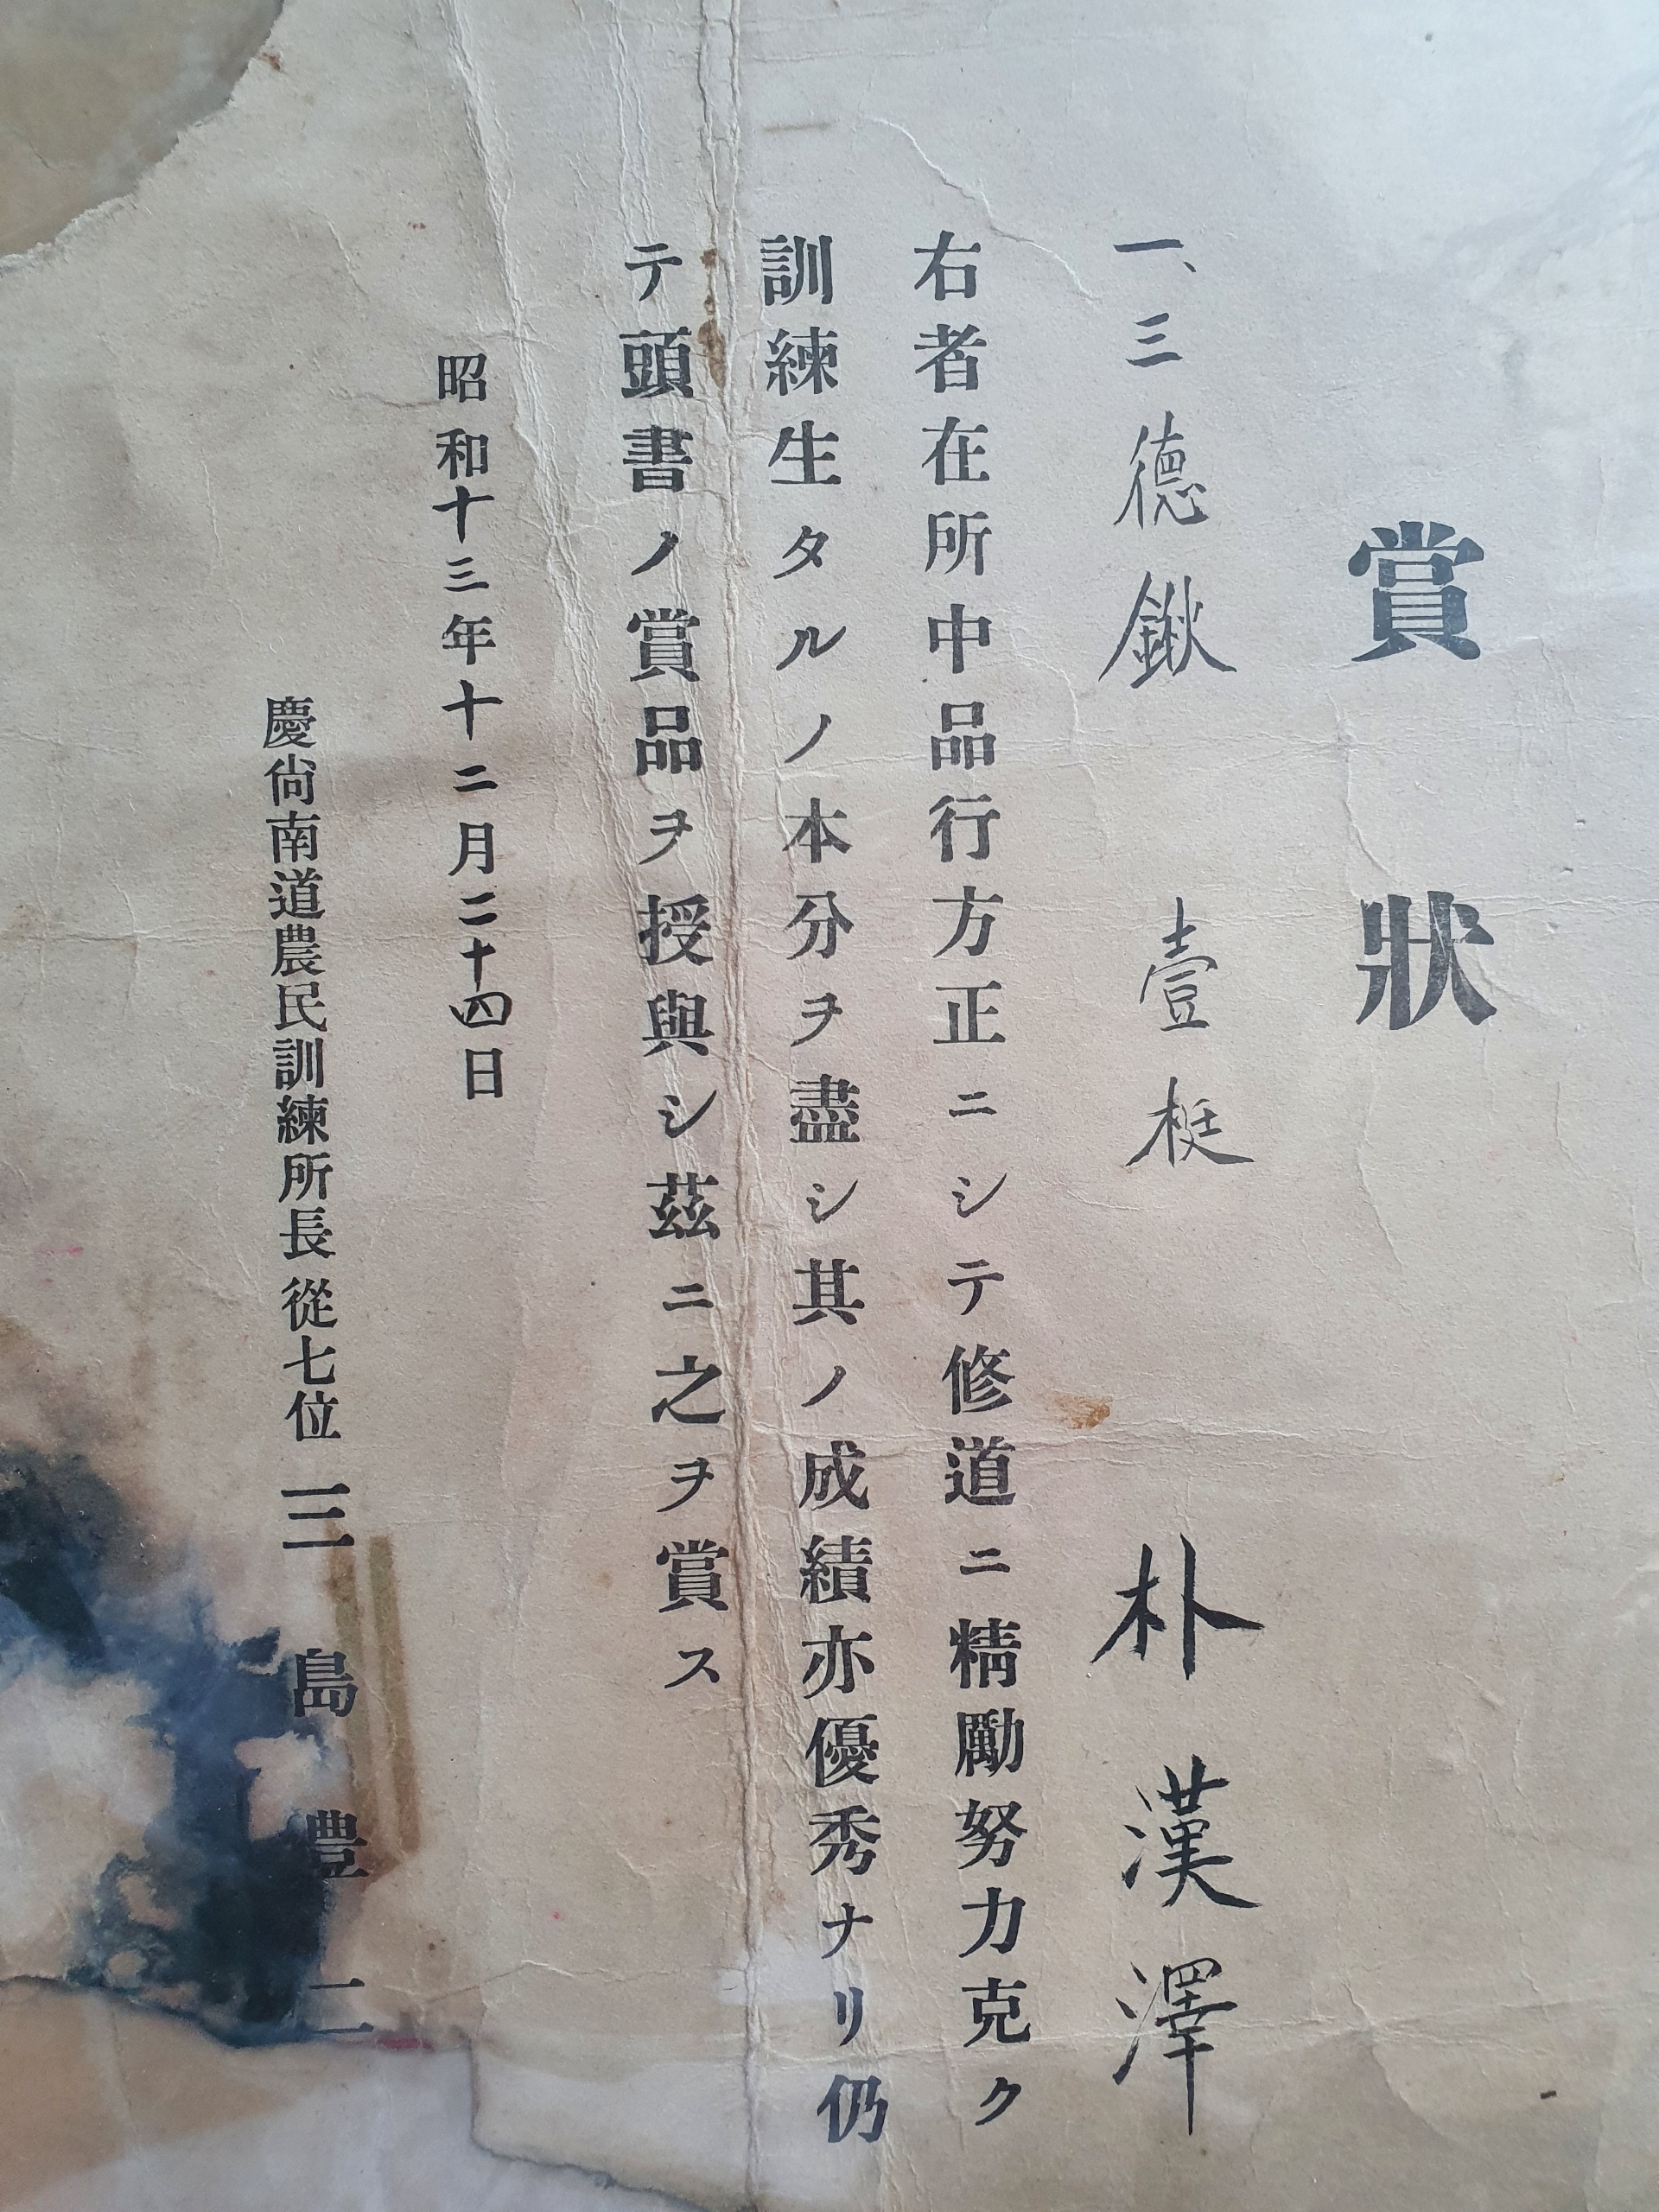 賞狀
一、三德鍬 壹梃
朴漢澤
右者在所中品行方正ニシテ修道ニ精勵努力克ク
訓練生タルノ本分ヲ盡シ其ノ成績亦優秀ナリ仍
テ頭書ノ賞品ヲ授與シ茲ニ之ヲ賞ス
昭和十三年十二月二十四日
慶尙南道農民訓練所長從七位 三島豊二